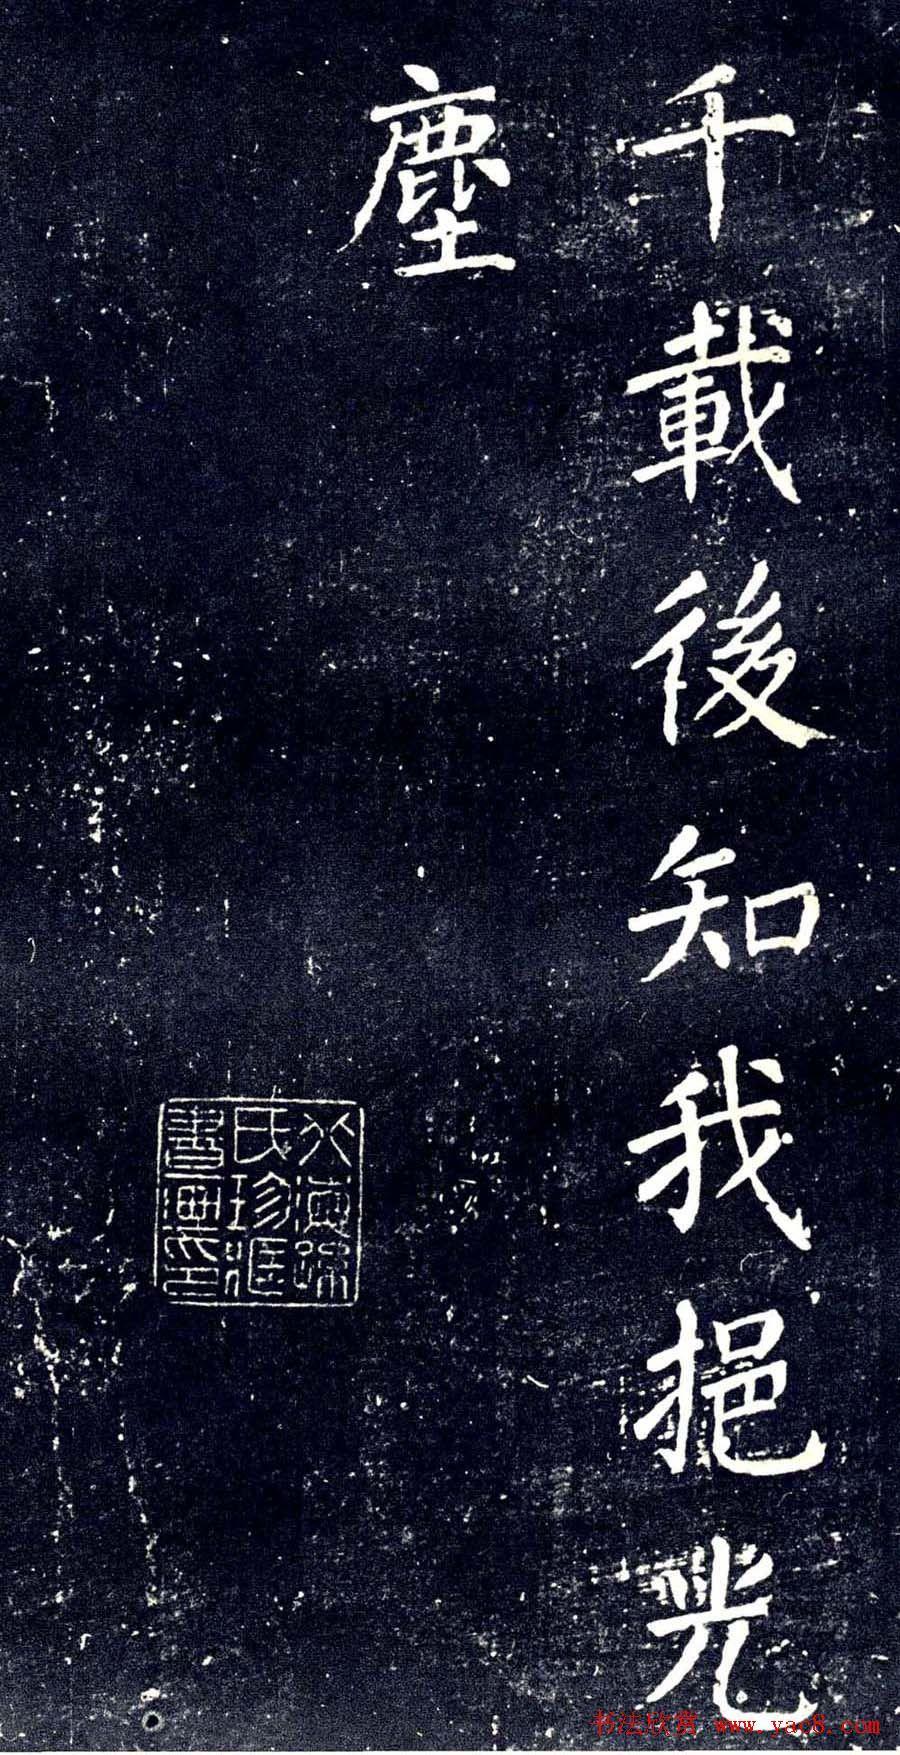 千載後知我挹光
塵
氏珍
書畫印
书法欣赏 www.yac8.com